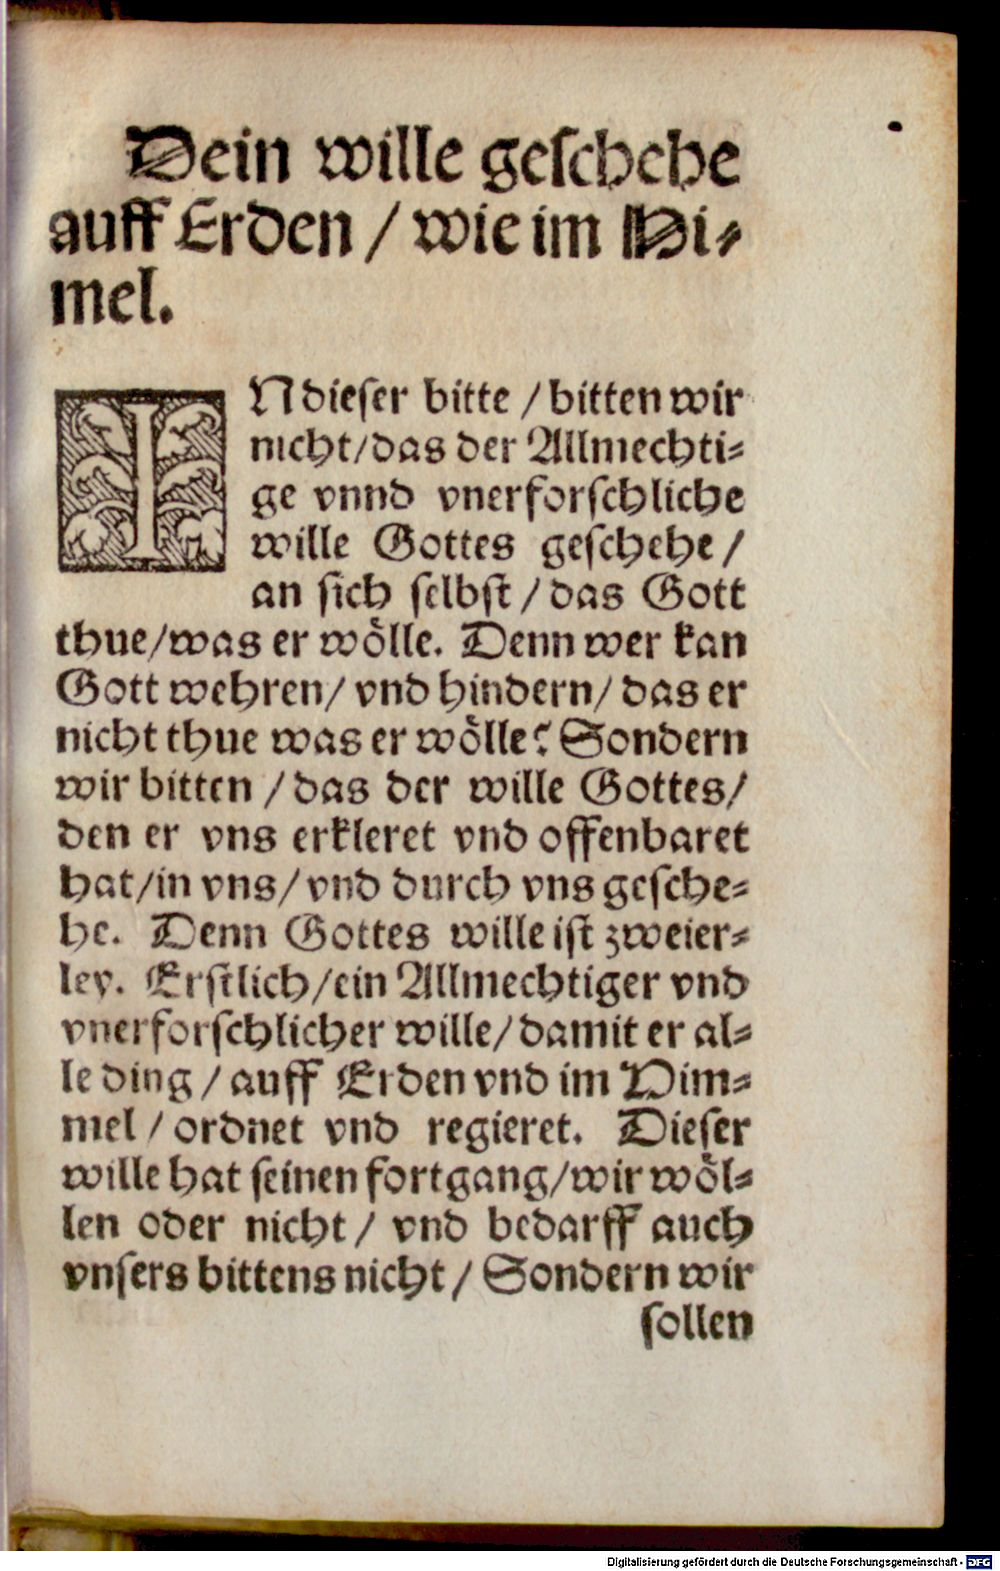 Dein wille geschehe
auff Erden / wie im Hi⸗
mel.
IN dieser bitte / bitten wir
nicht / das der Allmechti⸗
ge vnnd vnerforschliche
wille Gottes geschehe /
an sich selbst / das Gott
thue / was er wölle. Denn wer kan
Gott wehren / vnd hindern / das er
nicht thue was er wölle? Sondern
wir bitten / das der wille Gottes /
den er vns erkleret vnd offenbaret
hat / in vns / vnd durch vns gesche⸗
he. Denn Gottes wille ist zweier⸗
ley. Erstlich / ein Allmechtiger vnd
vnerforschlicher wille / damit er al⸗
le ding / auff Erden vnd im Him⸗
mel / ordnet vnd regieret. Dieser
wille hat seinen fortgang / wir wöl⸗
len oder nicht / vnd bedarff auch
vnsers bittens nicht / Sondern wir
sollen
Digitalisierung gefördert durch die Deutsche Forschungsgemeinschaft - DFG